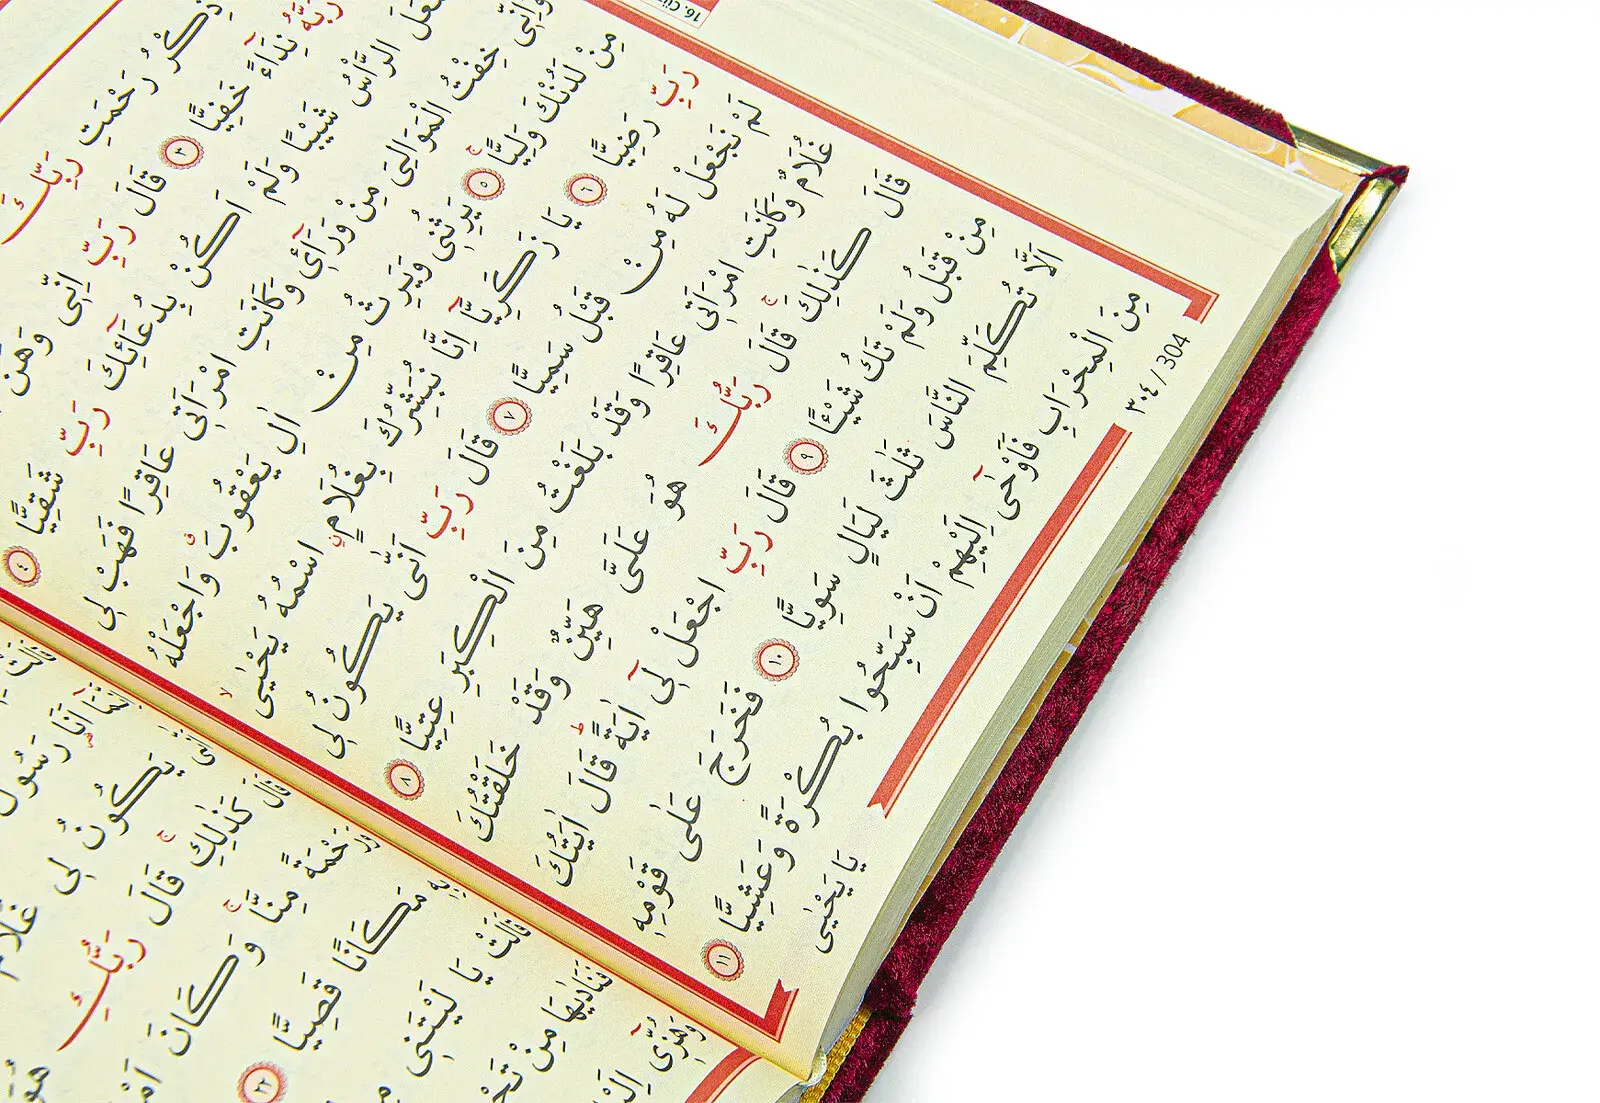 16. Cüz
ذِكْرُ رَحْمَتِ رَبِّكَ
رَبَّهُ نِدَآءً خَفِيًّا ٣ قَالَ رَبِّ اِنِّى وَهَنَ
الرَّأْسُ شَيْبًا وَلَمْ اَكُنْ بِدُعَآئِكَ رَبِّ شَقِيًّا ٤
وَاِنِّى خِفْتُ الْمَوَالِىَ مِنْ وَرَآئِى وَكَانَتِ امْرَاَتِى عَاقِرًا فَهَبْ لِى
مِنْ لَدُنْكَ وَلِيًّا ۚ ٥ يَرِثُنِى وَيَرِثُ مِنْ اٰلِ يَعْقُوبَ وَاجْعَلْهُ
رَبِّ رَضِيًّا ٦ يَا زَكَرِيَّآ اِنَّا نُبَشِّرُكَ بِغُلَامٍ اسْمُهُ يَحْيٰى ۙ
لَمْ نَجْعَلْ لَهُ مِنْ قَبْلُ سَمِيًّا ٧ قَالَ رَبِّ اَنّٰى يَكُونُ لِى
غُلَامٌ وَكَانَتِ امْرَاَتِى عَاقِرًا وَقَدْ بَلَغْتُ مِنَ الْكِبَرِ عِتِيًّا ٨
قَالَ كَذٰلِكَ ۚ قَالَ رَبُّكَ هُوَ عَلَىَّ هَيِّنٌ وَقَدْ خَلَقْتُكَ
مِنْ قَبْلُ وَلَمْ تَكُ شَيْـًٔا ٩ قَالَ رَبِّ اجْعَلْ لِىٓ اٰيَةً ۜ قَالَ اٰيَتُكَ
اَلَّا تُكَلِّمَ النَّاسَ ثَلٰثَ لَيَالٍ سَوِيًّا ١٠ فَخَرَجَ عَلٰى قَوْمِهِ
مِنَ الْمِحْرَابِ فَاَوْحٰىٓ اِلَيْهِمْ اَنْ سَبِّحُوا بُكْرَةً وَعَشِيًّا ١١
٣٠٤ / 304
يَا يَحْيٰى
اِنَّمَآ اَنَا رَسُولُ
يَكُونُ لِى غُلَامٌ
كَذٰلِكِ ۚ قَالَ رَبُّكِ هُوَ
وَرَحْمَةً مِنَّا ۚ وَكَانَ
بِهِ مَكَانًا قَصِيًّا ٢٢
قَالَتْ يَا لَيْتَنِى
فَنَادٰيهَا مِنْ
وَهُزِّىٓ